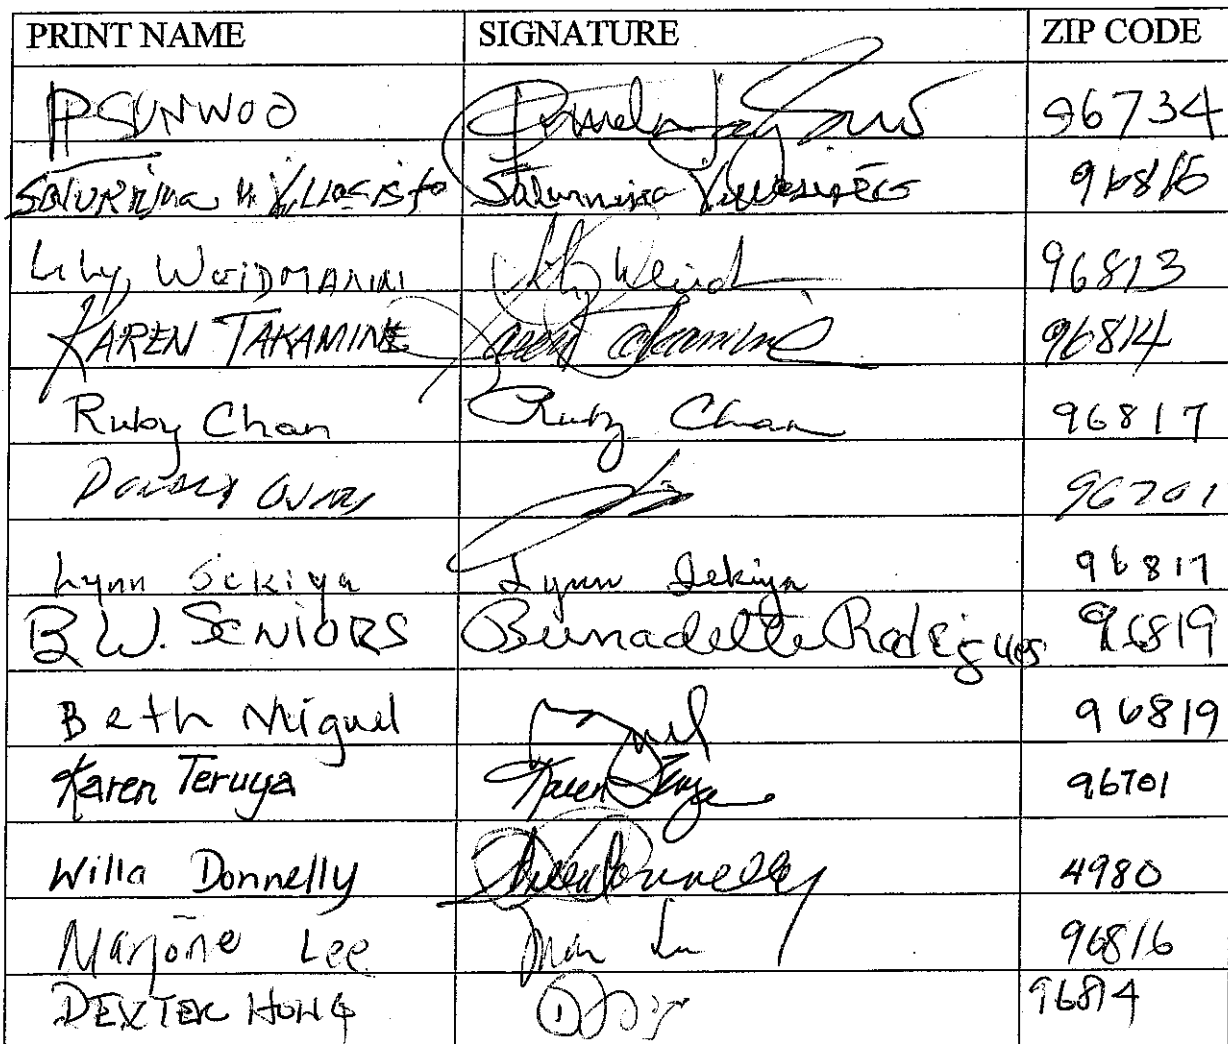 PRINT NAME SIGNATURE ZIP CODE
P SUNWOO Pamela 96734
Saturnina 96816
Lily Weidmann Lily Weid 96813
KAREN TAKAMINE Karen Takamine 96814
Ruby Chan Ruby Chan 96817
96701
Lynn Sekiya Lynn Sekiya 96817
B.W. SENIORS Bernadette Rodrigues 96819
Beth Miguel 96819
Karen Teruya Karen Teruya 96701
Willa Donnelly Willa Donnelly 4980
Marjorie Lee 96816
DEXTER HONG 96814